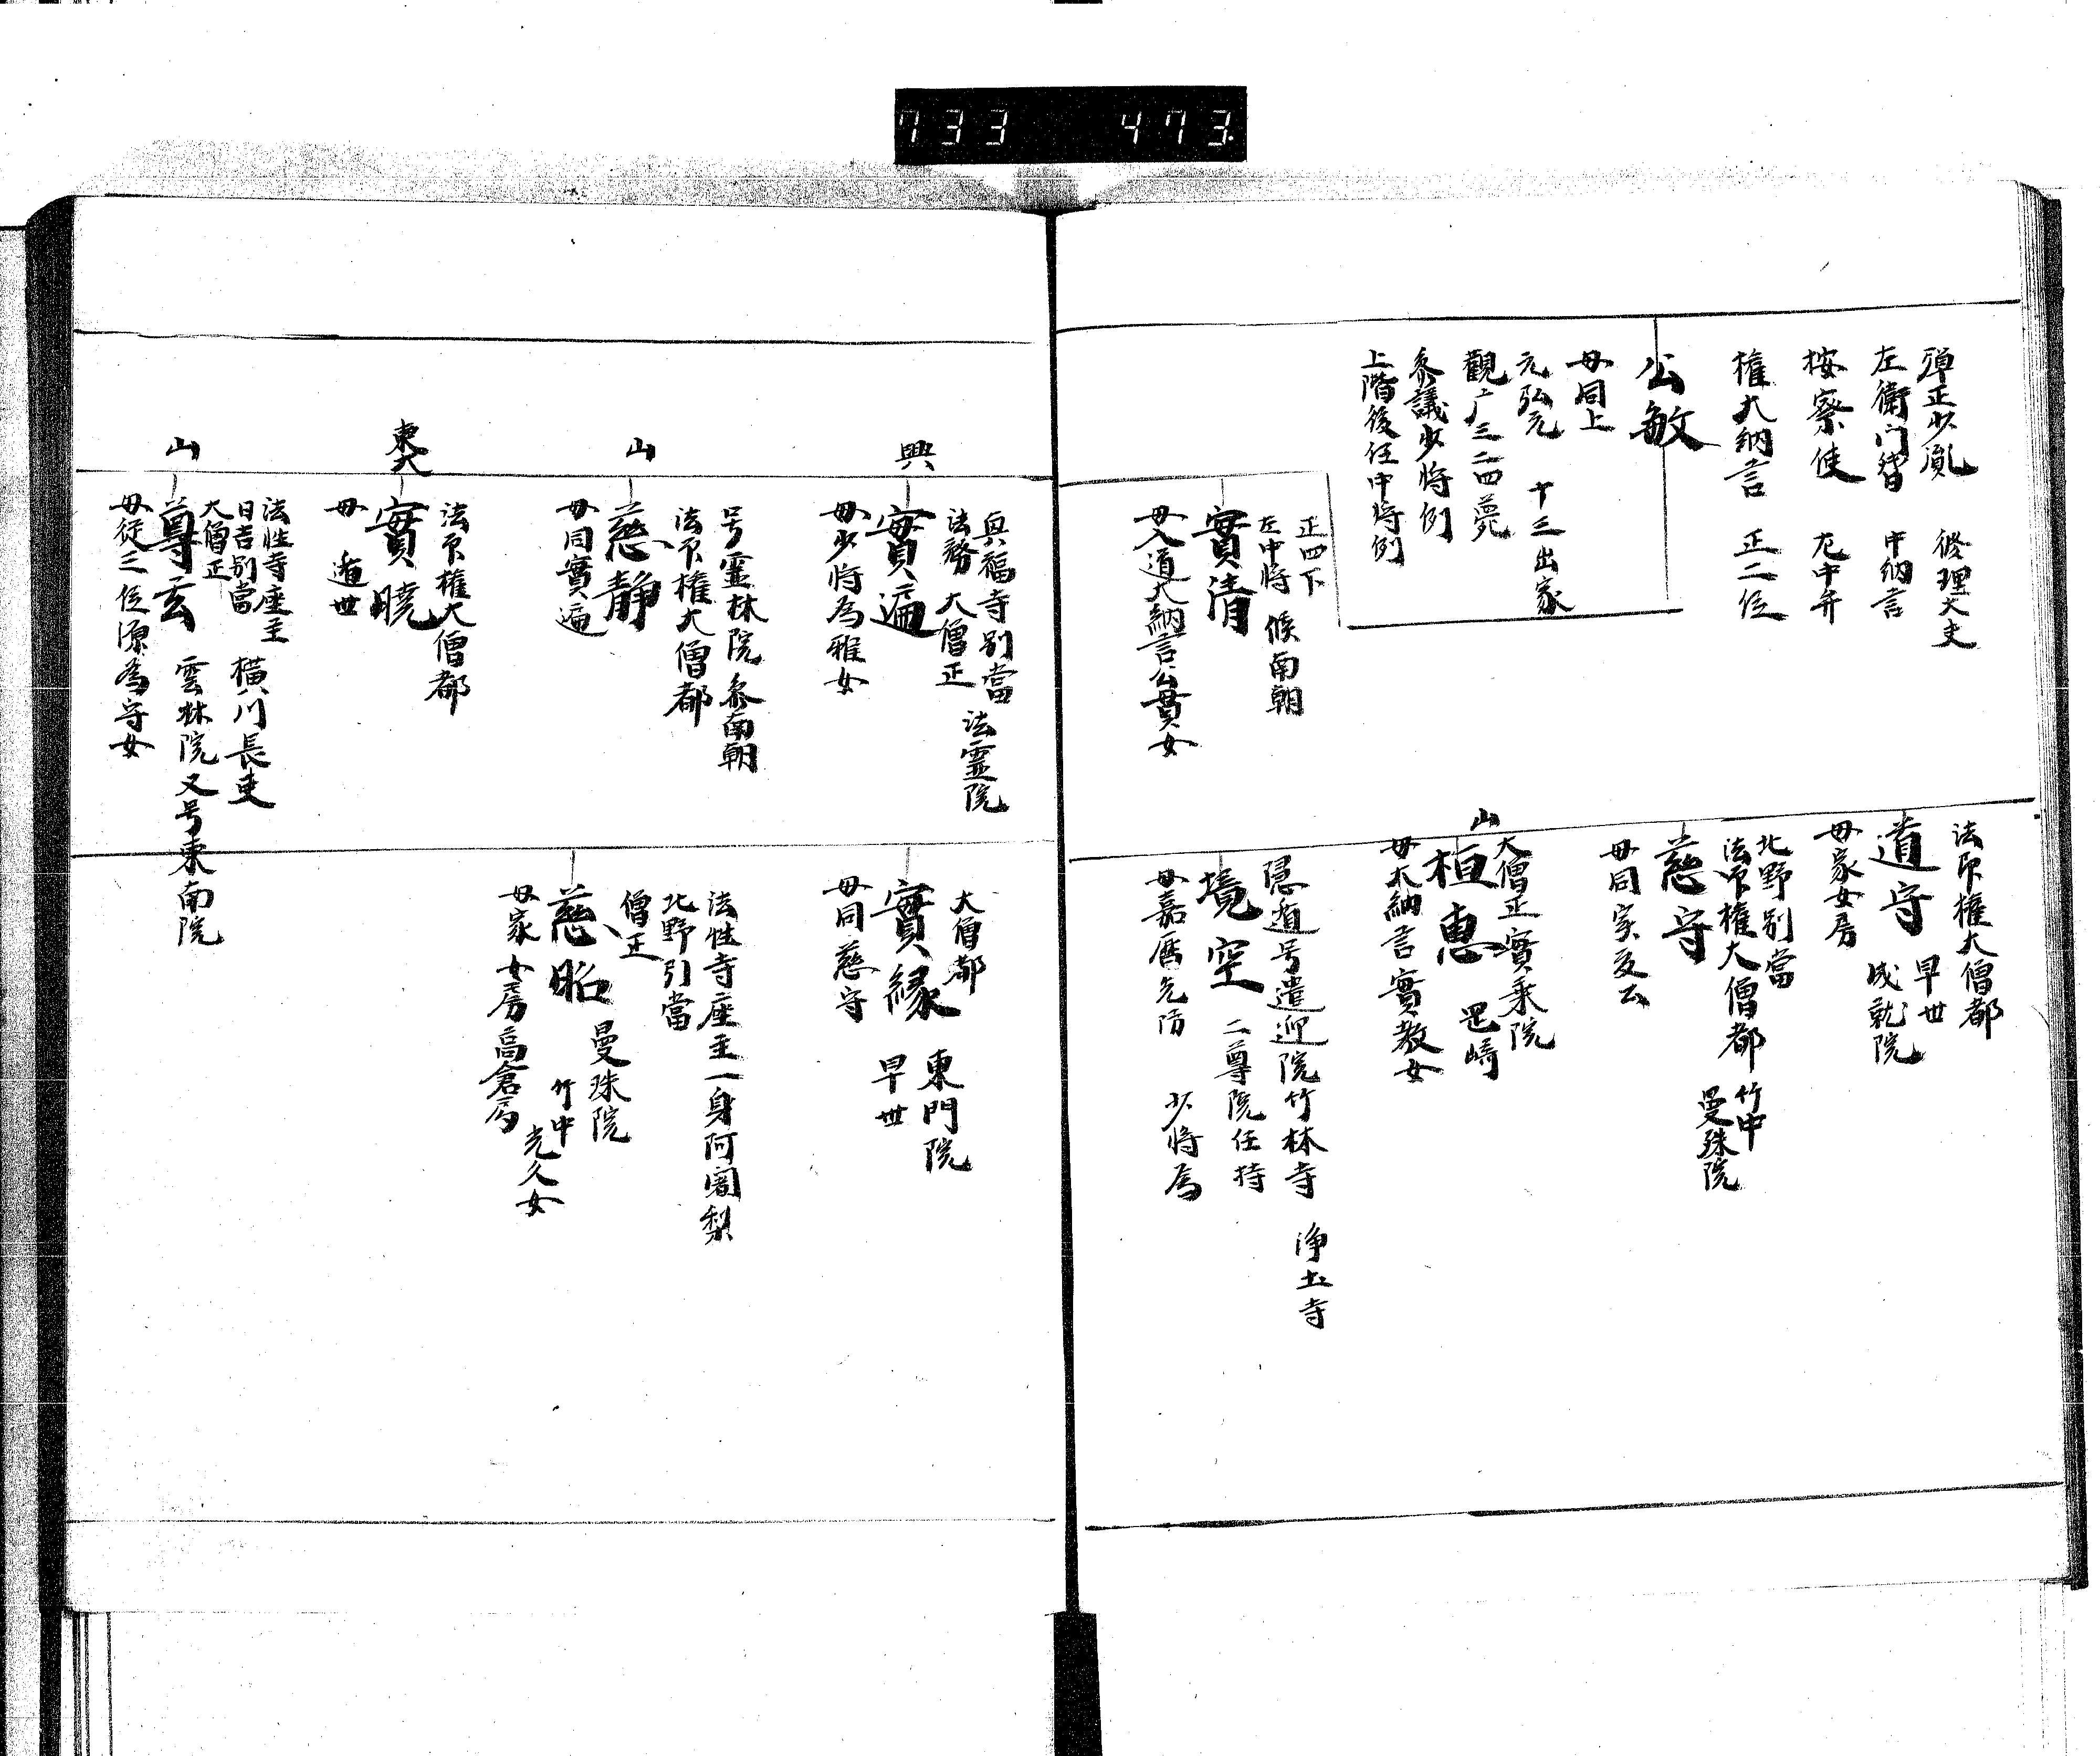 733 473
弾正少弼 修理大夫
左衛门督 中納言
按察使 左中弁
権大納言 正二位
公敏
母同上
元弘元 十三出家
觀广三二四薨
参議少将例
上階後任中将例
正四下
左中将 候南朝
實清
母入道大納言公貫女
法印権大僧都
道守 早世
成就院
母家女房
北野別當
法印権大僧都 竹中
曼殊院
慈守
母同
山
大僧正實乗院
桓惠 罡崎
母大納言實教女
隠遁号遣迎院竹林寺 浄土寺
境空 二尊院住持
母嘉暦
興
興福寺別當
法務 大僧正 法霊院
實遍
母少将為雅女
山
号霊林院 参南朝
法印権大僧都
慈静
母同實遍
東大
法印権大僧都
實曉
母 遁世
山
法性寺座主
日吉別當 横川長吏
大僧正
尊玄 雲林院又号東南院
母従三位源為守女
大僧都 東門院
實縁 早世
母同慈守
法性寺座主一身阿闍梨
北野引當
僧正 曼珠院
慈昭 竹中
光久女
母家女房高倉局